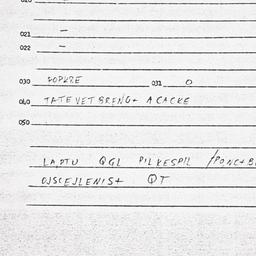 021 –
022 –
030 POPKRE 031 O
040 TATEVET BRENG+ A CACKE
050
LAPTU QGL PILKESPIL
OJSCEJLENIS+ QT